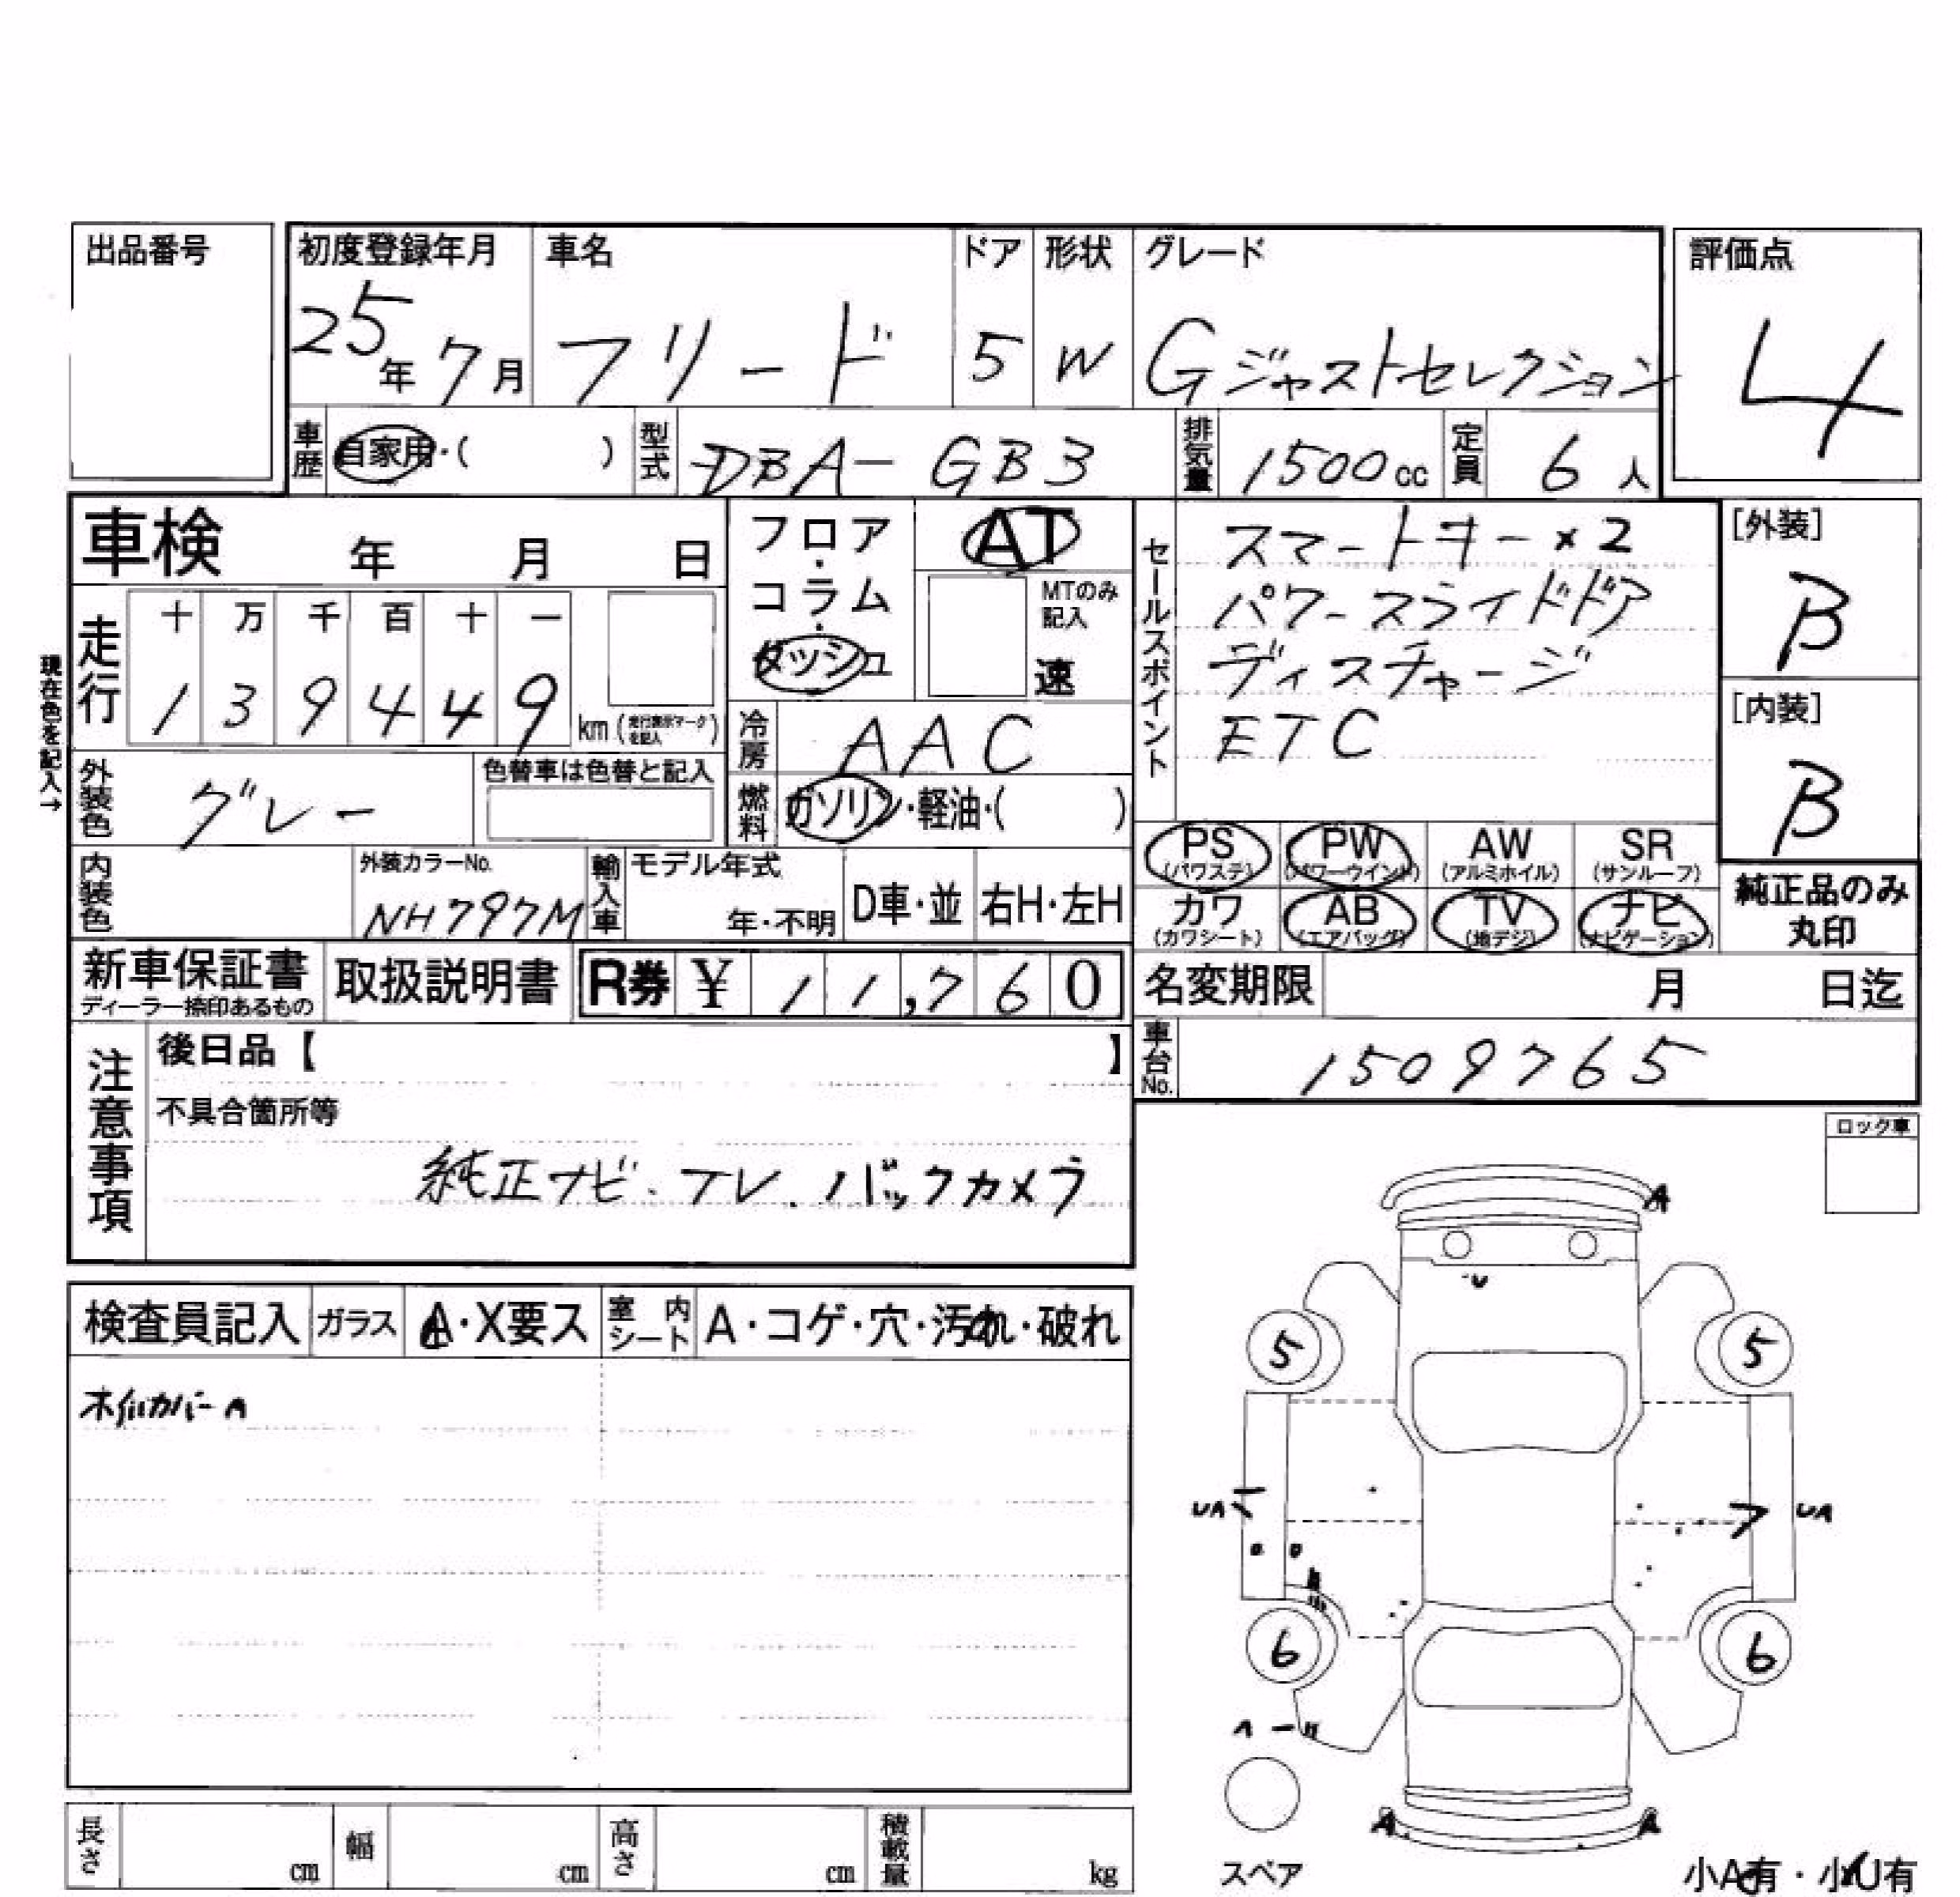 出品番号
初度登録年月 車名 ドア 形状 グレード 評価点
25年 7月 フリード 5 W Gジャストセレクション 4
車歴 自家用・( ) 型式 DBA-GB3 排気量 1500cc 定員 6人
車検 年 月 日
フロア・コラム・ダッシュ AT
MTのみ記入
速
セールスポイント
スマートキー×2
パワースライドドア
ディスチャージ
ETC
[外装]
B
[内装]
B
現在色を記入→
走行 十 万 千 百 十 一
1 3 9 4 4 9 km (走行表示マークを記入)
冷房 AAC
外装色 グレー 色替車は色替と記入
燃料 ガソリン・軽油・( )
PS (パワステ) PW (パワーウインド) AW (アルミホイル) SR (サンルーフ)
カワ (カワシート) AB (エアバッグ) TV (地デジ) ナビ (ナビゲーション)
純正品のみ丸印
内装色 外装カラーNo. NH797M 輸入車 モデル年式 年・不明 D車・並 右H・左H
新車保証書 ディーラー捺印あるもの 取扱説明書 R券 ¥ 11,760
名変期限 月 日迄
車台No. 1509765
注意事項
後日品【 】
不具合箇所等
純正ナビ・テレ・バックカメラ
ロック車
検査員記入 ガラス A・X要ス 室内シート A・コゲ・穴・汚れ・破れ
ホイルカバーA
A
U
5 5
UA UA
6 6
A
A A
スペア
小A有・小U有
長さ cm 幅 cm 高さ cm 積載量 kg